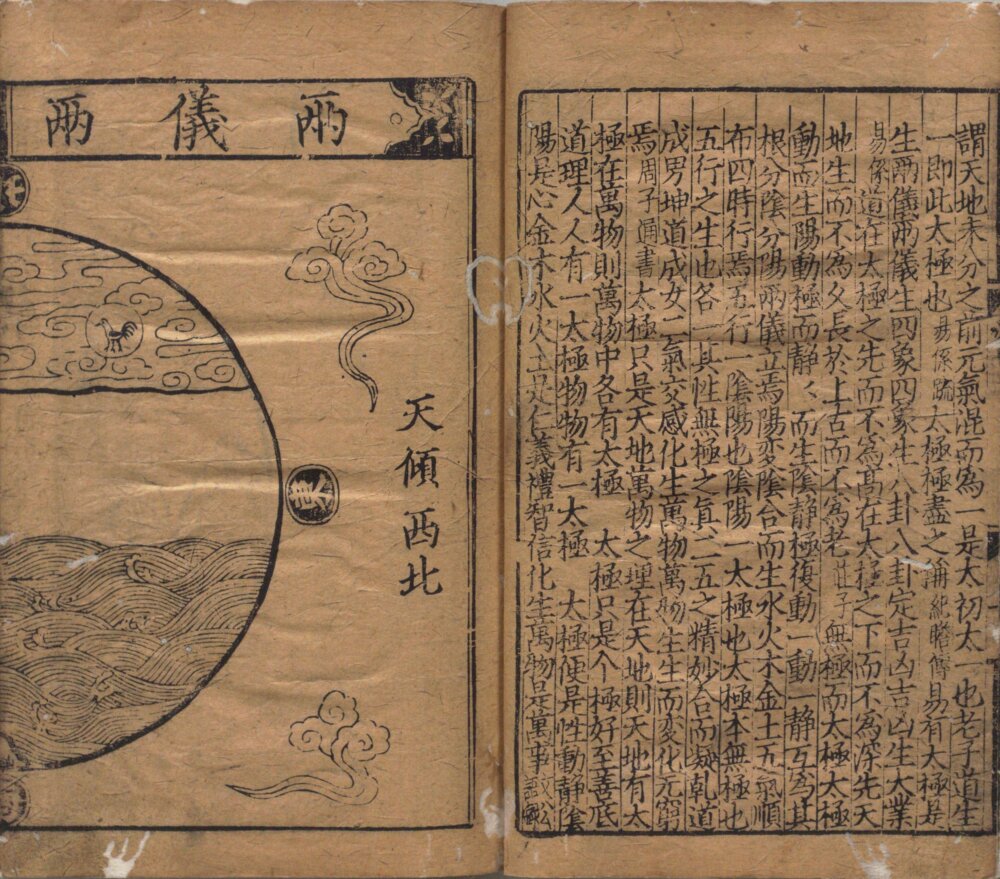 謂天地未分之前元氣混而為一是太初太一也老子道生
一即此太極也易係疏太極極盡之瀹紀瞻傳易有大極是
生兩儀兩儀生四象四象生八卦八卦定吉凶吉凶生大業
易係道在太極之先而不為高在太極之下而不為深先天
地生而不為久長於上古而不為老莊子無極而太極太極
動而生陽動極而静〻而生陰静極復動一動一静互為其
根分陰分陽兩儀立焉陽変陰合而生水火木金土五氣順
布四時行焉五行一陰陽也陰陽一太極也太極本無極也
五行之生也各一其性無極之真二五之精妙合而凝乹道
成男坤道成女二氣交感化生萬物萬物生生而变化无窮
焉周子通書太極只是天地萬物之理在天地則天地有太
極在萬物則萬物中各有太極 太極只是个極好至善底
道理人人有一太極物物有一太極 太極便是性動静陰
陽是心金木水火土是仁義禮智信化生萬物是萬事
兩儀兩
天傾西北